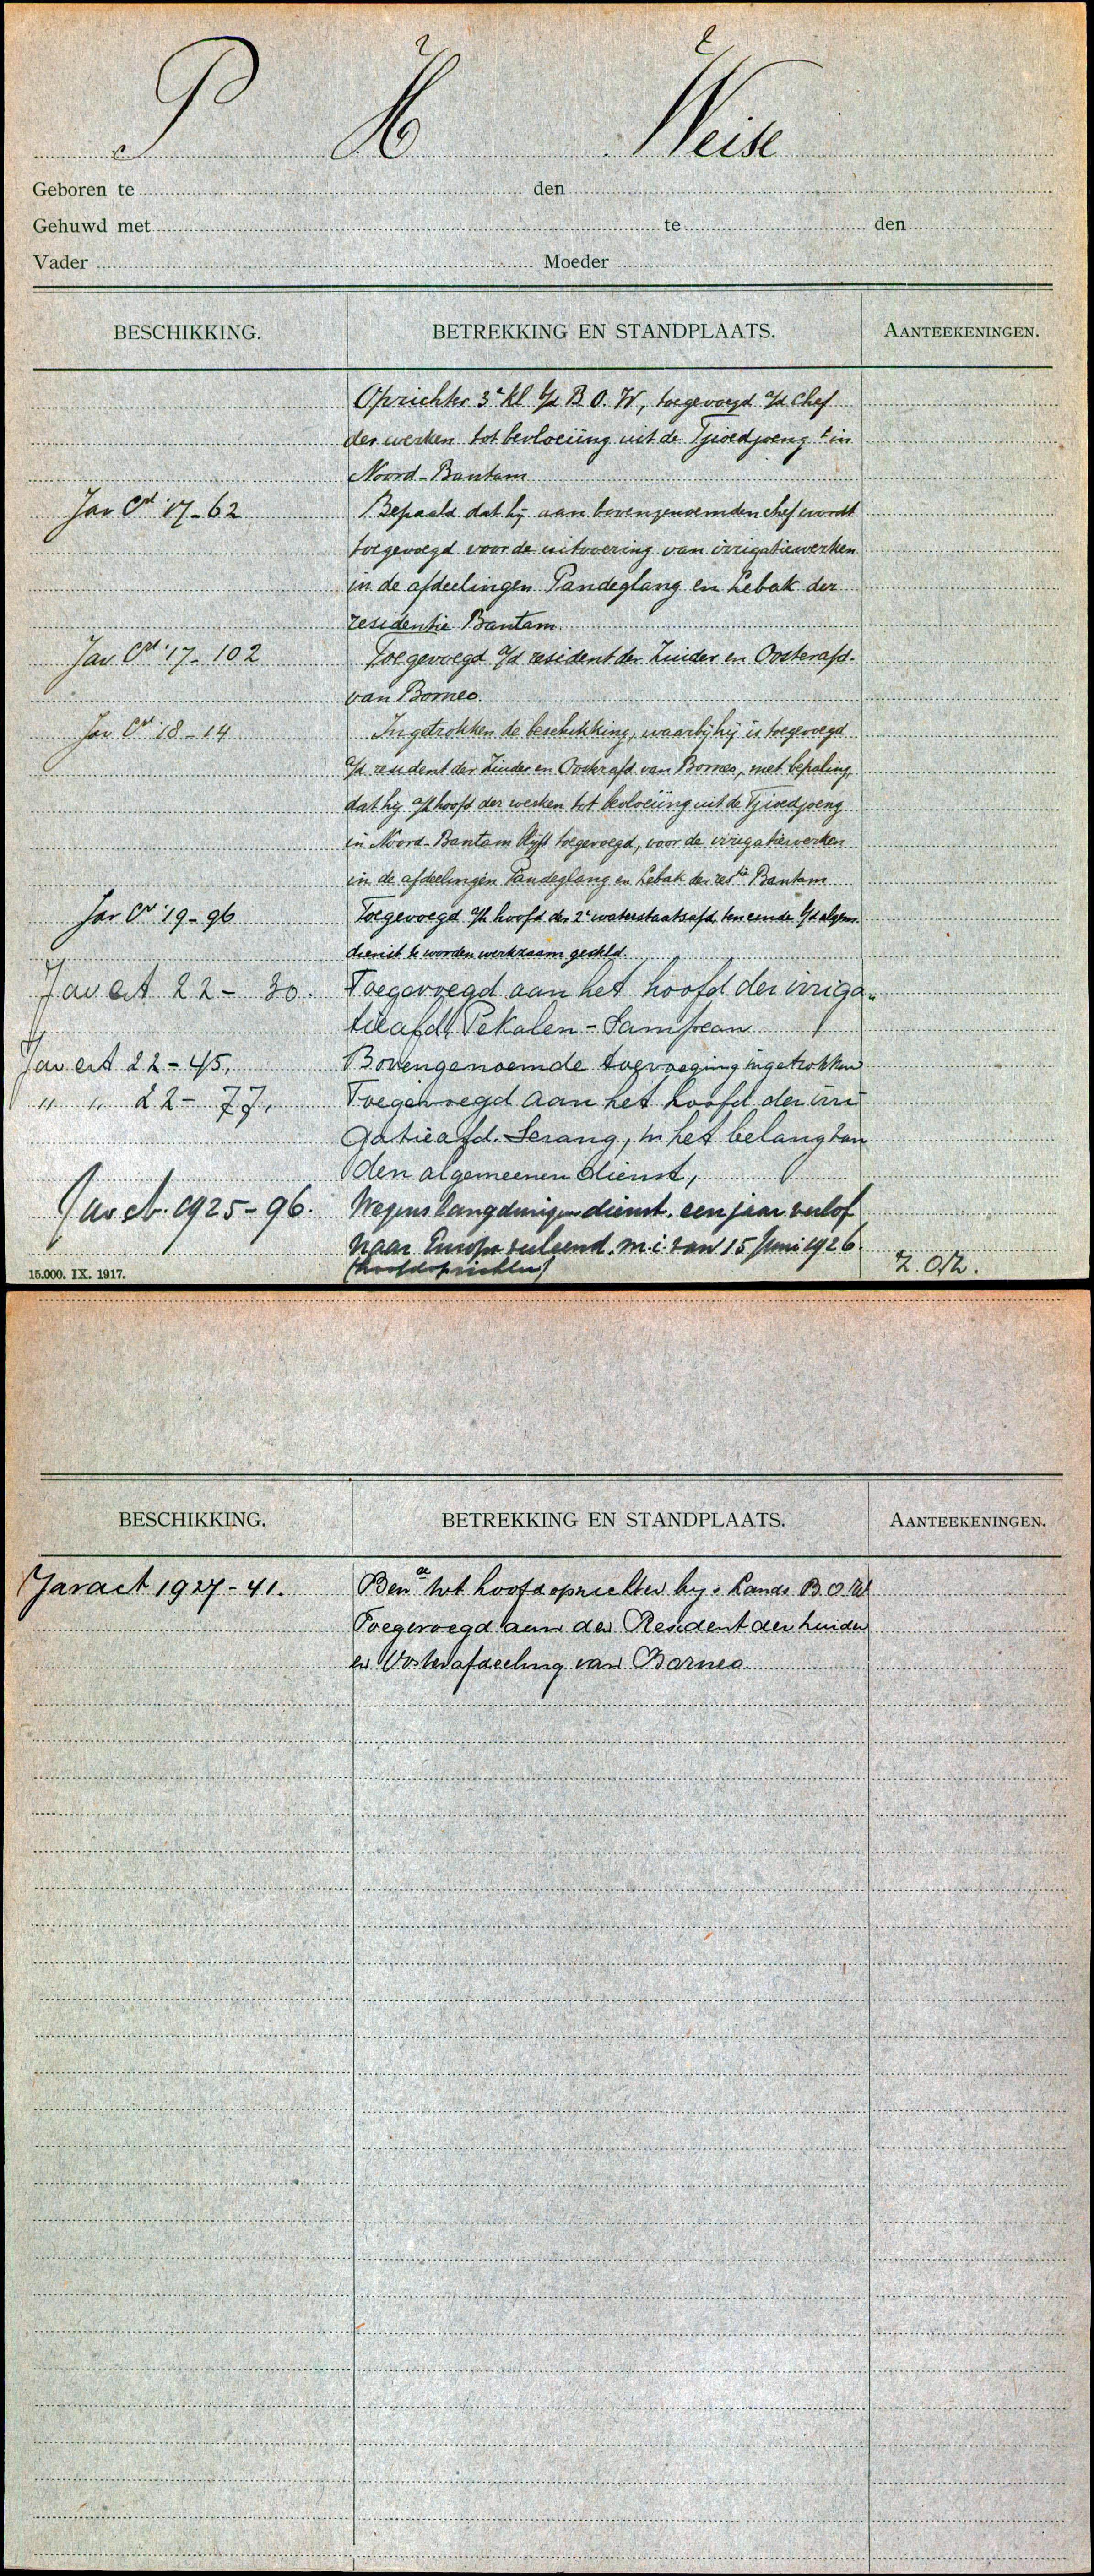 P H Weise
Geboren te den
Gehuwd met te den
Vader Moeder
BESCHIKKING. BETREKKING EN STANDPLAATS. AANTEEKENINGEN.
Opzichter 3e kl b/d B O. W, toegevoegd a/d Chef
der werken tot bevloeiing uit de Tjioedjoeng in
Noord-Bantam
Jav Ct '17-62 Bepaald dat hij aan bovengenoemden chef wordt
toegevoegd voor de uitvoering van irrigatiewerken
in de afdeelingen Pandeglang en Lebak der
residentie Bantam.
Jav Ct '17-102 Toegevoegd a/d resident der Zuider en Oosterafd.
van Borneo.
Jav Ct '18-14 Ingetrokken de beschikking, waarbij hij is toegevoegd
a/d resident der Zuider en Oosterafd van Borneo, met bepaling,
dat hij a/h hoofd der werken tot bevloeiing uit de Tjioedjoeng
in Noord-Bantam blijft toegevoegd, voor de irrigatiewerken
in de afdeelingen Pandeglang en Lebak der restie Bantam
Jav Ct '19-96 Toegevoegd a/h hoofd der 2e waterstaatsafd, ten einde b/d algem.
dienst te worden werkzaam gesteld.
Jav ct 22-30. Toegevoegd aan het hoofd der irriga-
tieafd. Pekalen-Sampean
Jav ct 22-45. Bovengenoemde toevoeging ingetrokken
" " 22-77. Toegevoegd aan het hoofd der irri
gatieafd. Serang, in het belang van
den algemeenen dienst,
Jav ct. 1925-96. Wegens langdurigen dienst. een jaar verlof
naar Europa verleend. m.i. van 15 Juni 1926.
(hoofdopzichter) Z.O.Z.
15.000. IX. 1917.
BESCHIKKING. BETREKKING EN STANDPLAATS. AANTEEKENINGEN.
Javact 1927-41. Ben tot hoofdopzichter by 's Lands B.O.W
Toegevoegd aan den Resident der Zuider
en Oosterafdeeling van Borneo